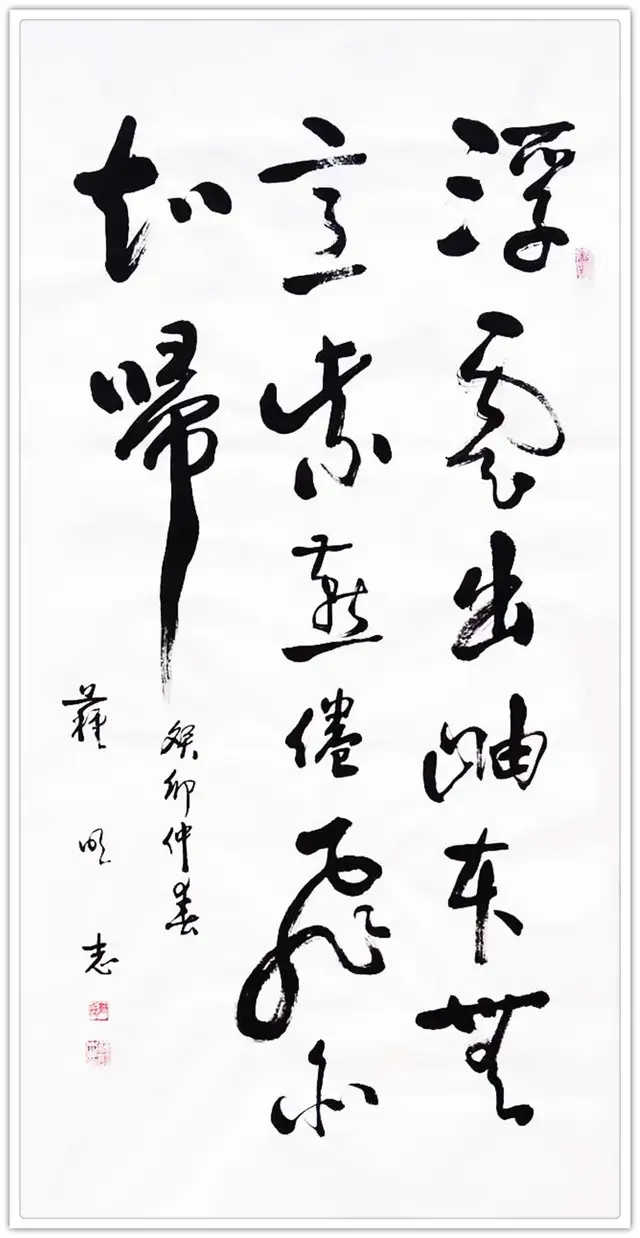 浮雲出岫本無
意紫燕倦飛亦
知歸
癸卯仲春
明志